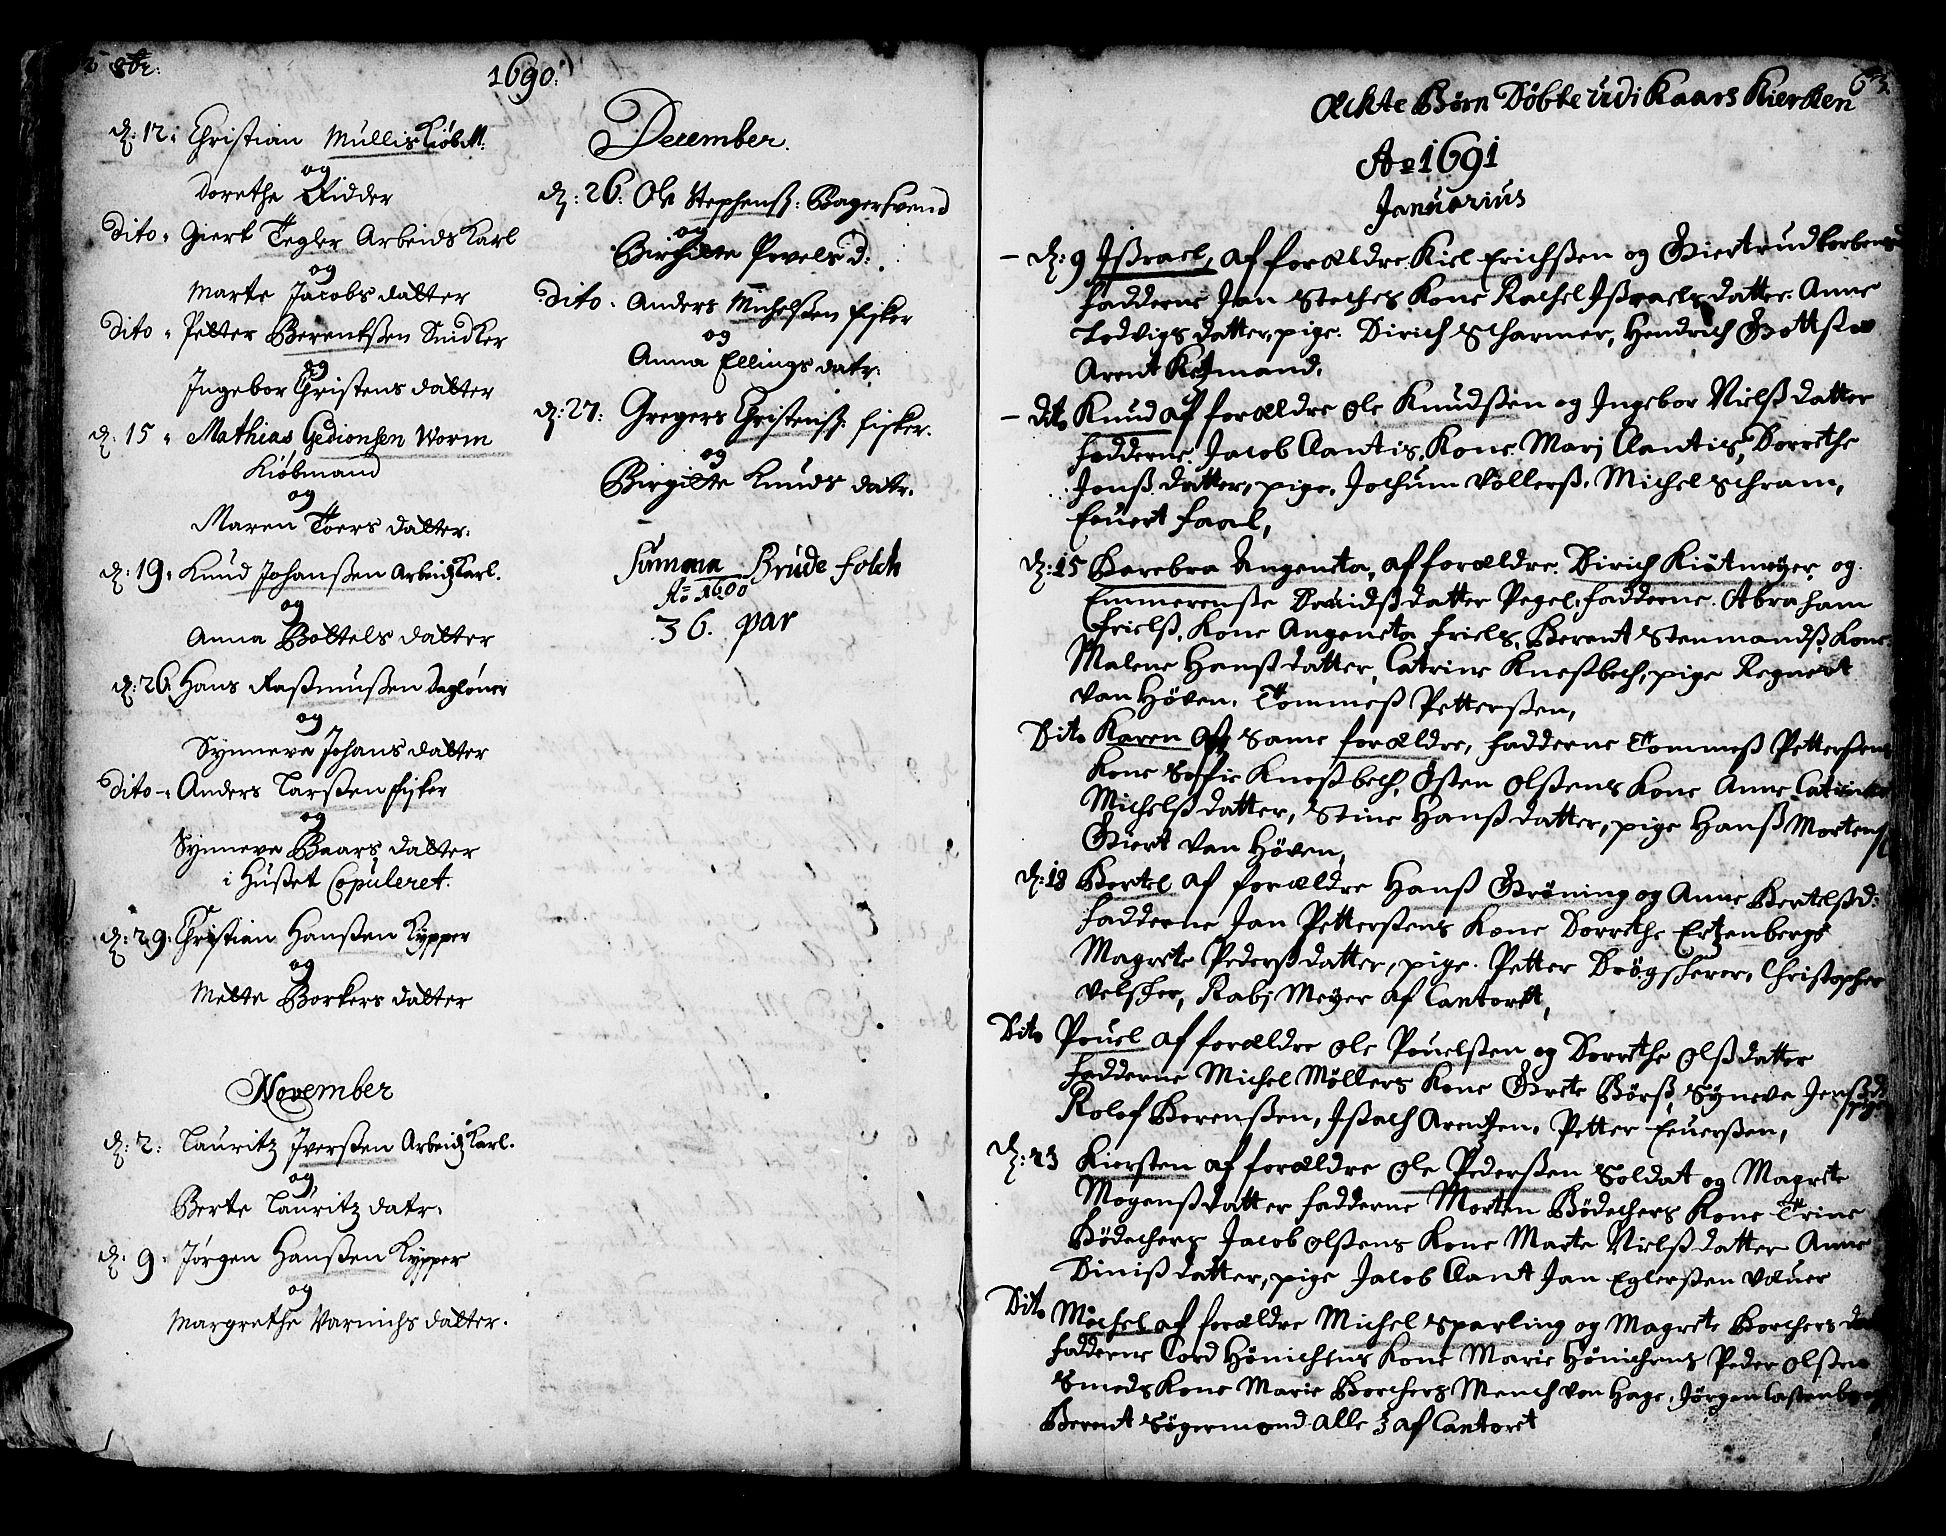 8br:
1690:
d: 12: Christian Mullis Kiöb M:
og
Dorethe Ridder
Dito: Giert Tegler Arbeids Karl
og
Marte Jacobs datter
Dito: Petter Berentßen Snidker
og
Ingebor Christens datter
d: 15: Mathias Gedionsen Worm
Kiöbmand
og
Maren Toers datter.
d: 19: Knud Johanßen Arbeidz Karl.
og
Anna Bottels datter
d: 26 Hans Raßmußen Daglöner
og
Synneve Johans datter
Dito: Anders Larßen fisker
og
Synneve Baars datter
i Hußet Copuleret.
d: 29: Christian Hanßen Kypper
og
Mette Borkers datter
November
d: 2: Lauritz Iverßen Arbeidz Karl.
og
Berte Lauritz datr:
d: 9: Jörgen Hanßen Kypper
og
Margrethe Varnichs datter.
December.
d: 26: Ole Stephenß: Bagersvend
og
Birgitte Povels d:
Dito: Anders Michelßen fisker
og
Anna Ellings datr:
d: 27: Gregers Christenß: fisker.
og
Birgitte Knuds datr.
Summa Brude folch
Ao 1690
36. par
63.
Æchte Börn Döbte udi Kaars Kierken
Ao 1691
Januarius
d: 9 Ißrael, af forældre Kiel Erichßen og Giertrud Torbens
fadderne Jan Stethes Kone Rachel Ißraels datter. Anne
Lodvigs datter, pige. Dirich Scharmer, Hendrich Gottsa
Arent Kochmand.
Dito Knud af forældre Ole Knudßen og Ingebor Nielß datter
fadderne Jacob Clantis, Kone Marj Clantis, Dorrethe
Jonß datter, pige, Jochum Völlerß. Michel Schram,
Evert Faal,
d: 15 Barebra Angeneta, af forældre. Dirich Kiötmeyer og
Emmerenße Davidß datter Pegel, fadderne. Abraham
Frielß, Kone Angeneta Friels, Berent Stenmandß Kone
Malene Hanß datter, Catrine Kneßbech, pige Regnert
Van Höven, Tommeß Petterßen,
Dito Karen af Same forældre, fadderne Tommeß Petterßens
Kone Sofie Kneßbech, Östen Olßens Kone Anne Catrine
Michelß datter, Stine Hanß datter, pige Hanß Mortenß
Giert Van Höven,
d: 18 Bertel af forældre Hanß Gröning og Anne Bertelßd:
fadderne Jan Petterßens Kone Dorrethe Ertzenbergs
Magrete Pederß datter, pige. Petter Drögscherer, Christopher
Velscher, Rabj Meyer af Cantoret,
Dito Pouel af forældre Ole Pouelßen og Dorrethe Olß datter
fadderne Michel Möllers Kone Grete Börß Syneve Jenßd
pige
Rolof Berenßen, Ißach Arentzen, Petter Everßen,
d: 23 Kiersten af forældre Ole Pederßen Soldat og Magrete
Mogenß datter fadderne Morten Bödechers Kone Trine
Bödechers Jacob Olßens Kone Marte Nielß datter Anne
Diniß datter, pige Jacob Clant Jan Eglerßen Væver
Dito Michel af forældre Michel Sparling og Magrete Borchers dat
fadderne Cord Hönichens Kone Marie Hönichens Peder Olßen
Smeds Kone Marie Borchers Mench von Hage, Jörgen Castenberg
Berent Sögermand alle 3 af Cantoret